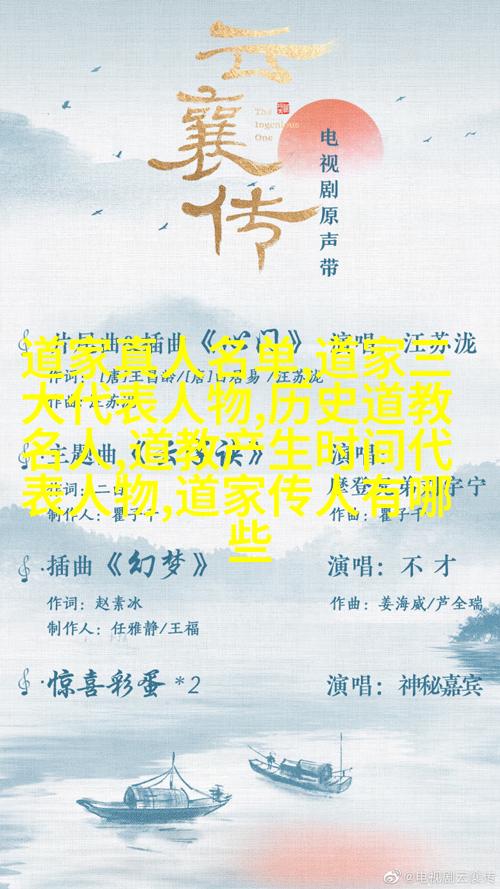 云襄传
The Ingenious One
电视剧原声带
道家真人名单,道家三
大代表人物,历史道教
名人,道教产生时间代
表人物,道家传人有哪
些
演唱：汪苏泷
作词：[唐]王昌龄/[唐]白居易/汪苏泷
作曲：汪苏泷
主题曲
演唱：
制作人：瞿子千
作曲：瞿子千
插曲《幻梦》
演唱：不才
作词：赵素冰
作曲：姜海威/芦全瑞
制作人：任雅静/王福
惊喜彩蛋 *2
演唱：神秘嘉宾
@电视剧云襄传